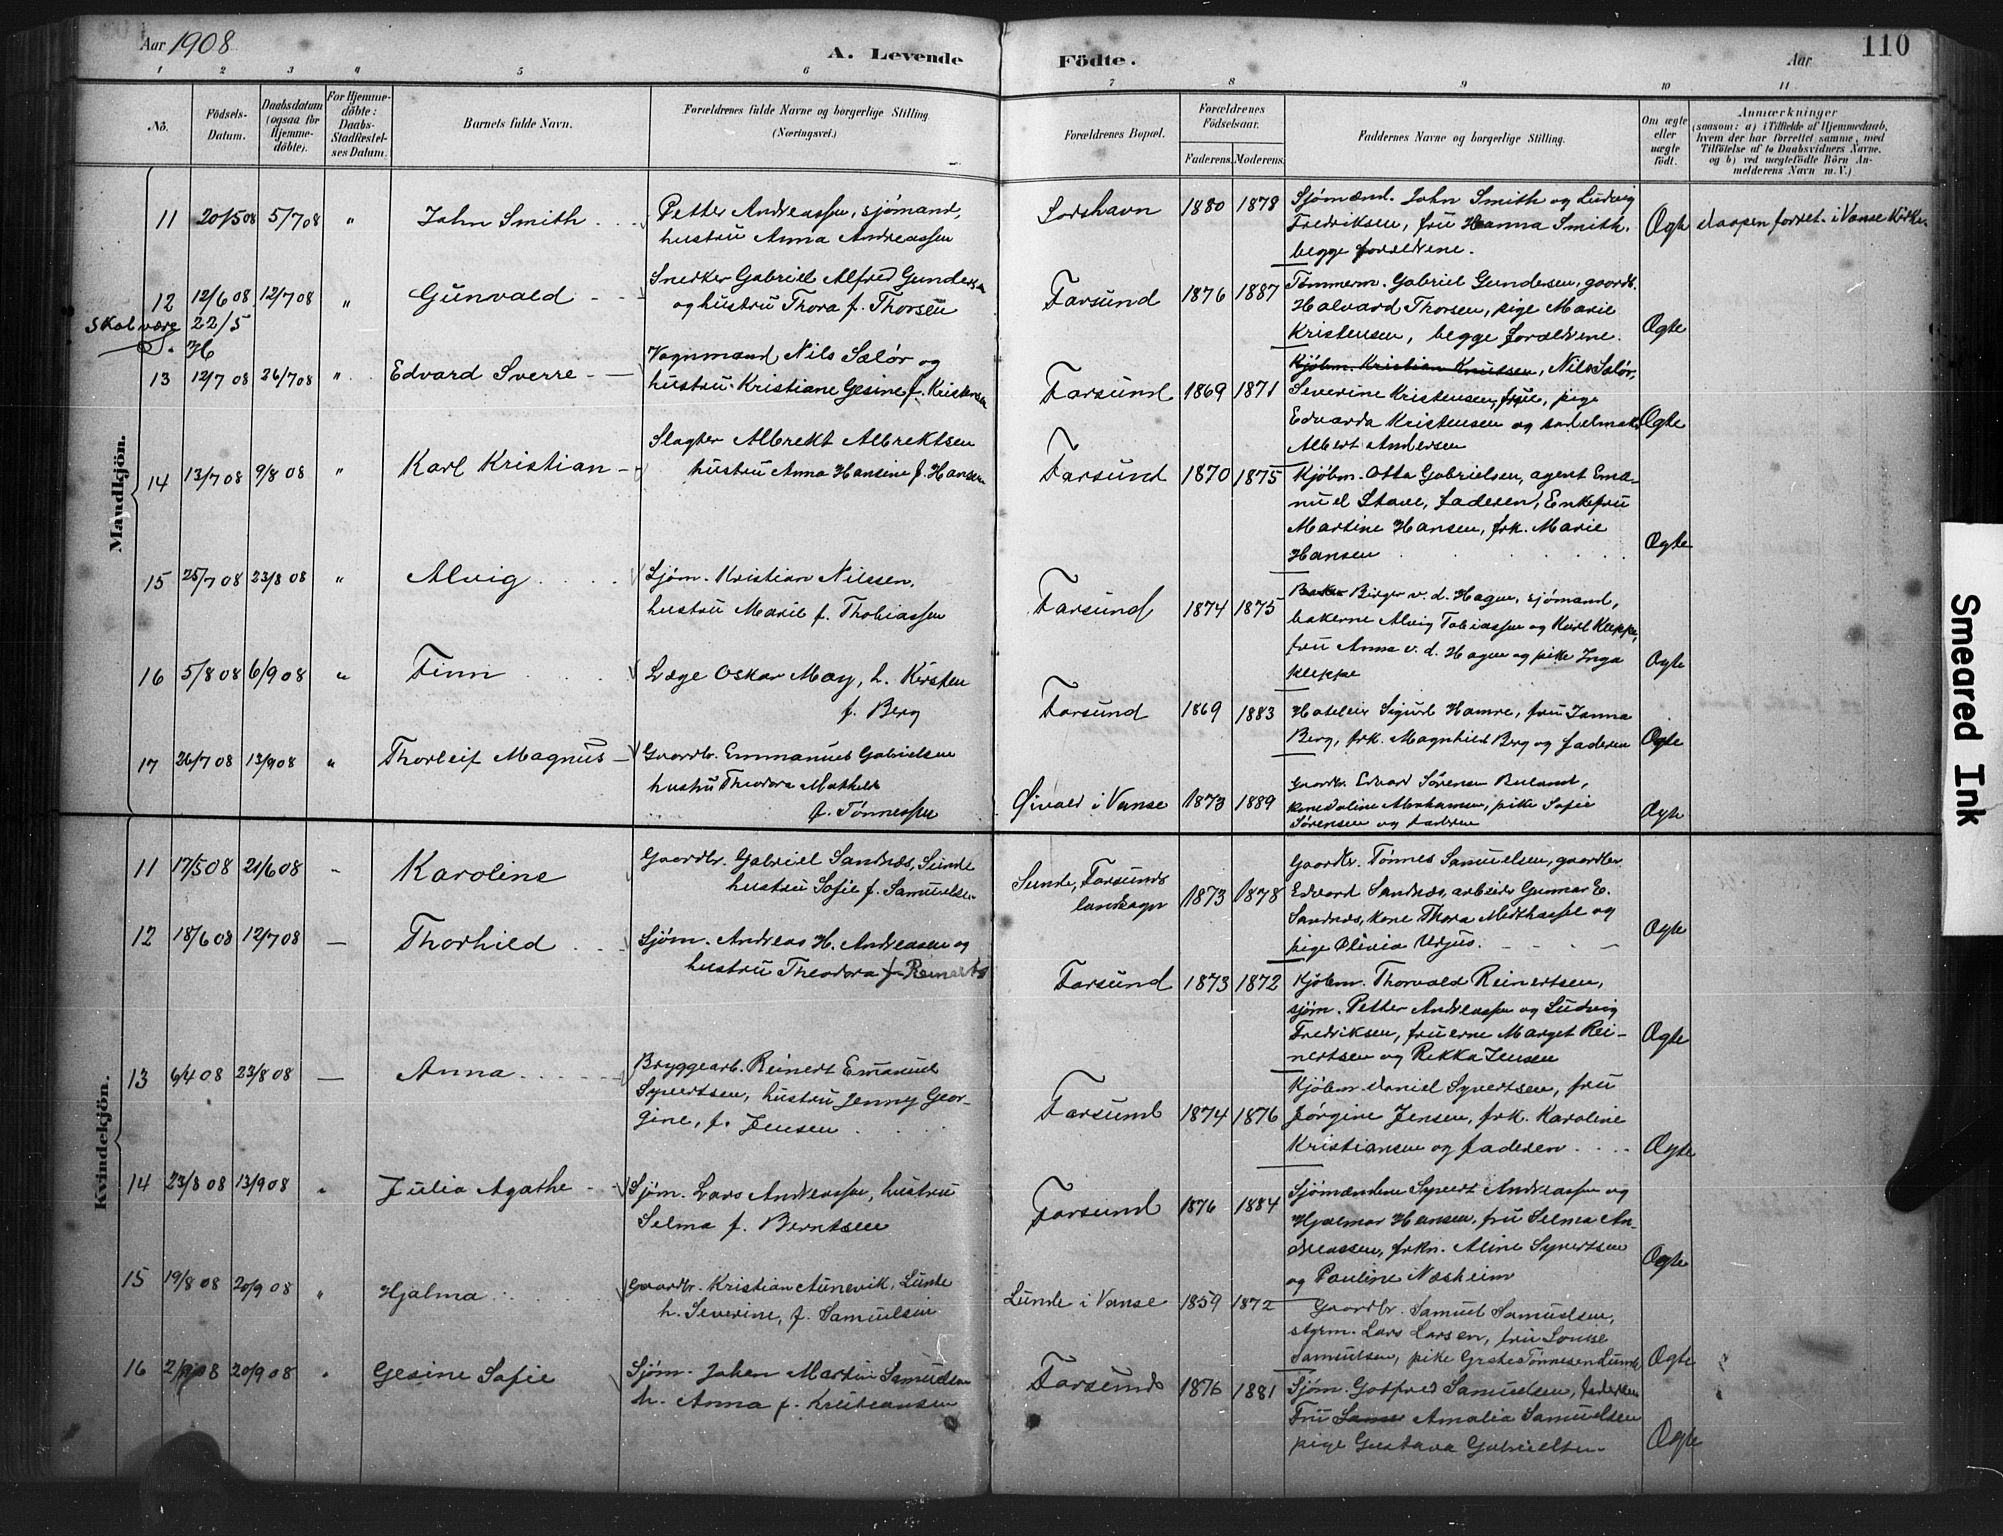 Aar 1908
A. Levende Födte.
Aar
110
1 2 3 4 5 6 7 8 9 10 11
No.
Födsels-Datum.
Daabsdatum (ogsaa for Hjemme-döbte).
For Hjemme-döbte: Daabs-Stadfæstel-ses Datum.
Barnets fulde Navn.
Forældrenes fulde Navne og borgerlige Stilling (Næringsvei.)
Forældrenes Bopæl.
Forældrenes Födselsaar.
Faderens. Moderens.
Faddernes Navne og borgerlige Stilling.
Om ægte eller uægte födt.
Anmærkninger
(saasom: a) i Tilfælde af Hjemmedaab, hvem der har forrettet samme, med Tilföielse af to Daabsvidners Navne, og b) ved uægtefödte Börn An-melderens Navn m. V.)
Mandkjön.
11 20/5 08 5/7 08 " John Smith
Petter Andreassen, sjömand,
hustru Anna Andreassen
Loshavn 1880 1878
Sjömænd. John Smith og Ludvig
Fredriksen, fru Hanna Smith.
begge forældrene.
Ægte Daapen forret. i Vanse Kirke.
12 12/6 08 12/7 08 " Gunvald
Snekker Gabriel Alfred Gundersen
og hustru Thora f. Thorsen
Farsund 1876 1887
Tömmerm. Gabriel Gundersen, gaardb.
Halvard Thorsen, pige Marie
Kristensen, begge forældrene.
Ægte
Skal være 22/5
H
13 12/7 08 26/7 08 " Edvard Sverre
Vognmand Nils Sælör og
hustru Kristiane Gesine f. Kristensen
Farsund 1869 1871
Kjöbm. Kristian Knutsen, Nils Sælör,
Severine Kristensen, frue, pige
Edvarda Kristensen og sadelmak.
Albert Andersen
Ægte
14 13/7 08 9/8 08 " Karl Kristian
Slagter Albrekt Albrektsen
hustru Anna Hansine f. Hansen
Farsund 1870 1875
Kjöbm. Otto Gabrielsen, agent Ema-
nuel Stave, faderen, Enkefru
Martine Hansen, frk. Marie
Hansen
Ægte
15 25/7 08 23/8 08 " Alvig
Sjöm. Kristian Nilssen,
hustru Marie f. Thobiassen
Farsund 1874 1875
Birger v. d. Hagen, sjömand,
bakerne Alvig Tobiassen og Karl Kleppe,
fru Anna v. d. Hagen og pike Inga
Kleppe
Ægte
16 5/8 08 6/9 08 " Finn
Læge Oskar May, h. Kirsten
f. Berg
Farsund 1869 1883
Hoteleier Sigurd Hamre, fru Janna
Berg, frk. Magnhild Berg og faderen
Ægte
17 26/7 08 13/9 08 " Thorleif Magnus
Gaardbr. Emmanuel Gabrielsen
hustru Theodora Mathilde
f. Tönnessen
Öivold i Vanse 1873 1889
Gaardbr. Edvard Sörensen Buland,
kone Joline Abrahamsen, pike Sofie
Sörensen og faderen
Ægte
Kvindekjön.
11 17/5 08 21/6 08 - Karoline
Gaardbr. Gabriel Sandnæs, Sunde
hustru Sofie f. Samuelsen
Sunde, Farsunds
landsogn 1873 1878
Gaardbr. Tönnes Samuelsen, gaardbr.
Edvard Sandnæs, arbeider Gunnar E.
Sandnæs, kone Thora Midthassel og
pige Olivia Urjus.
Ægte
12 18/6 08 12/7 08 — Thorhild
Sjöm. Andreas H. Andreassen og
hustru Theodora f. Reinerts
Farsund 1873 1872
Kjöbm. Thorvald Reinertsen,
sjöm. Petter Andreassen og Ludvig
Fredriksen, fruerne Marget Rei-
nertsen og Rikka Jensen
Ægte
13 6/4 08 23/8 08 — Anna
Bryggearb. Reinert Emanuel
Syvertsen, hustru Jenny Geor-
gine, f. Jensen
Farsund 1874 1876
Kjöbm. Daniel Syvertsen, fru
Jörgine Jensen, frk. Karoline
Kristiansen og faderen
Ægte
14 23/8 08 13/9 08 " Julia Agathe
Sjöm. Lars Andreassen, hustru
Selma f. Berntsen
Farsund 1876 1884
Sjömændene Syvert Andreassen og
Hjalmar Hansen, fru Selma An-
dreassen, frkn. Aline Syvertsen
og Pauline Næsheim
Ægte
15 19/8 08 20/9 08 " Hjalma
Gaardbr. Kristian Aunevik, Lunde
h. Severine, f. Samuelsen
Lunde i Vanse 1859 1872
Gaardbr. Samuel Samuelsen,
styrm. Lars Larsen, fru Lovise
Samuelsen, pike Grete Tönnesen Lunde
Ægte
16 08 20/9 08 " Gesine Sofie
Sjöm. Johan Martin Samuelsen
h. Anna f. Kristiansen
Farsund 1876 1881
Sjöm. Gotfred Samuelsen, faderen
Fru Amalia Samuelsen
pige Gustava Gabrielsen
Ægte
Smeared Ink